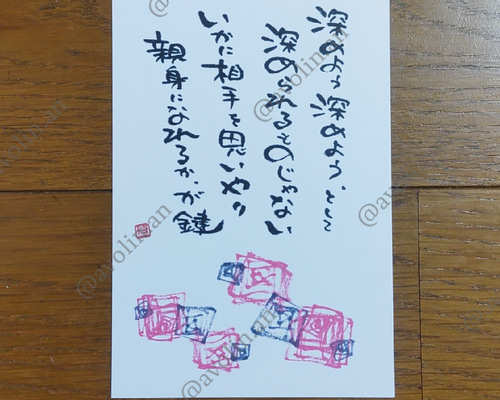 深めよう深めよう、として
深められるものじゃない
いかに相手を思いやり
親身になれるか、が鍵
@avolinan